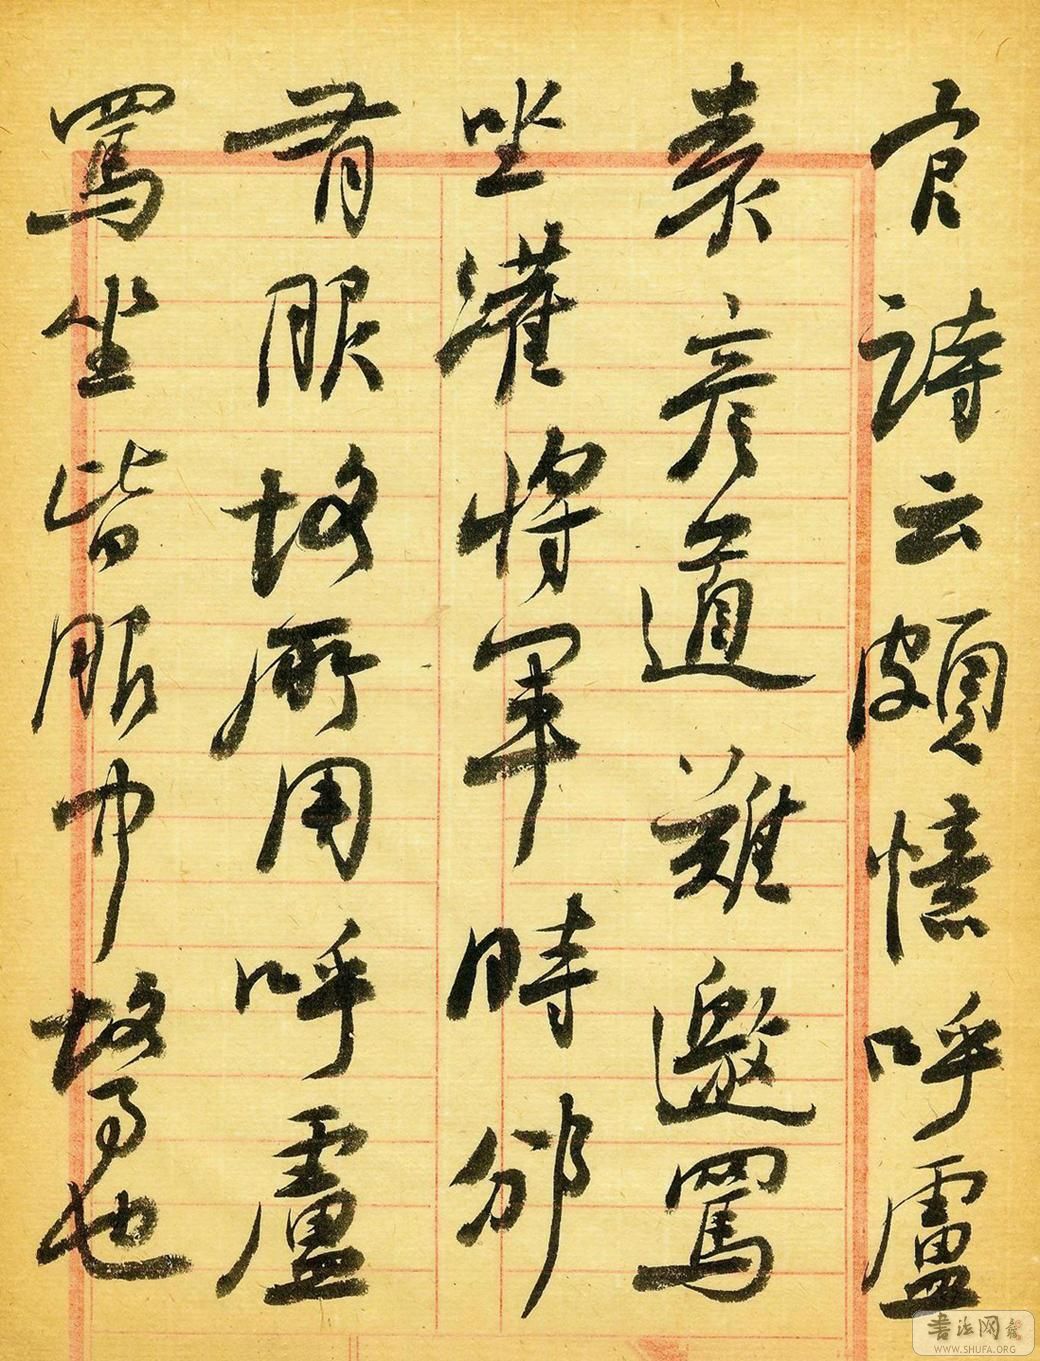 官詩云頗憶呼盧
袁彥道難邀罵
坐灌將軍時邠
有服故所用呼盧
罵坐皆服中故事也
書法网
WWW.SHUFA.ORG